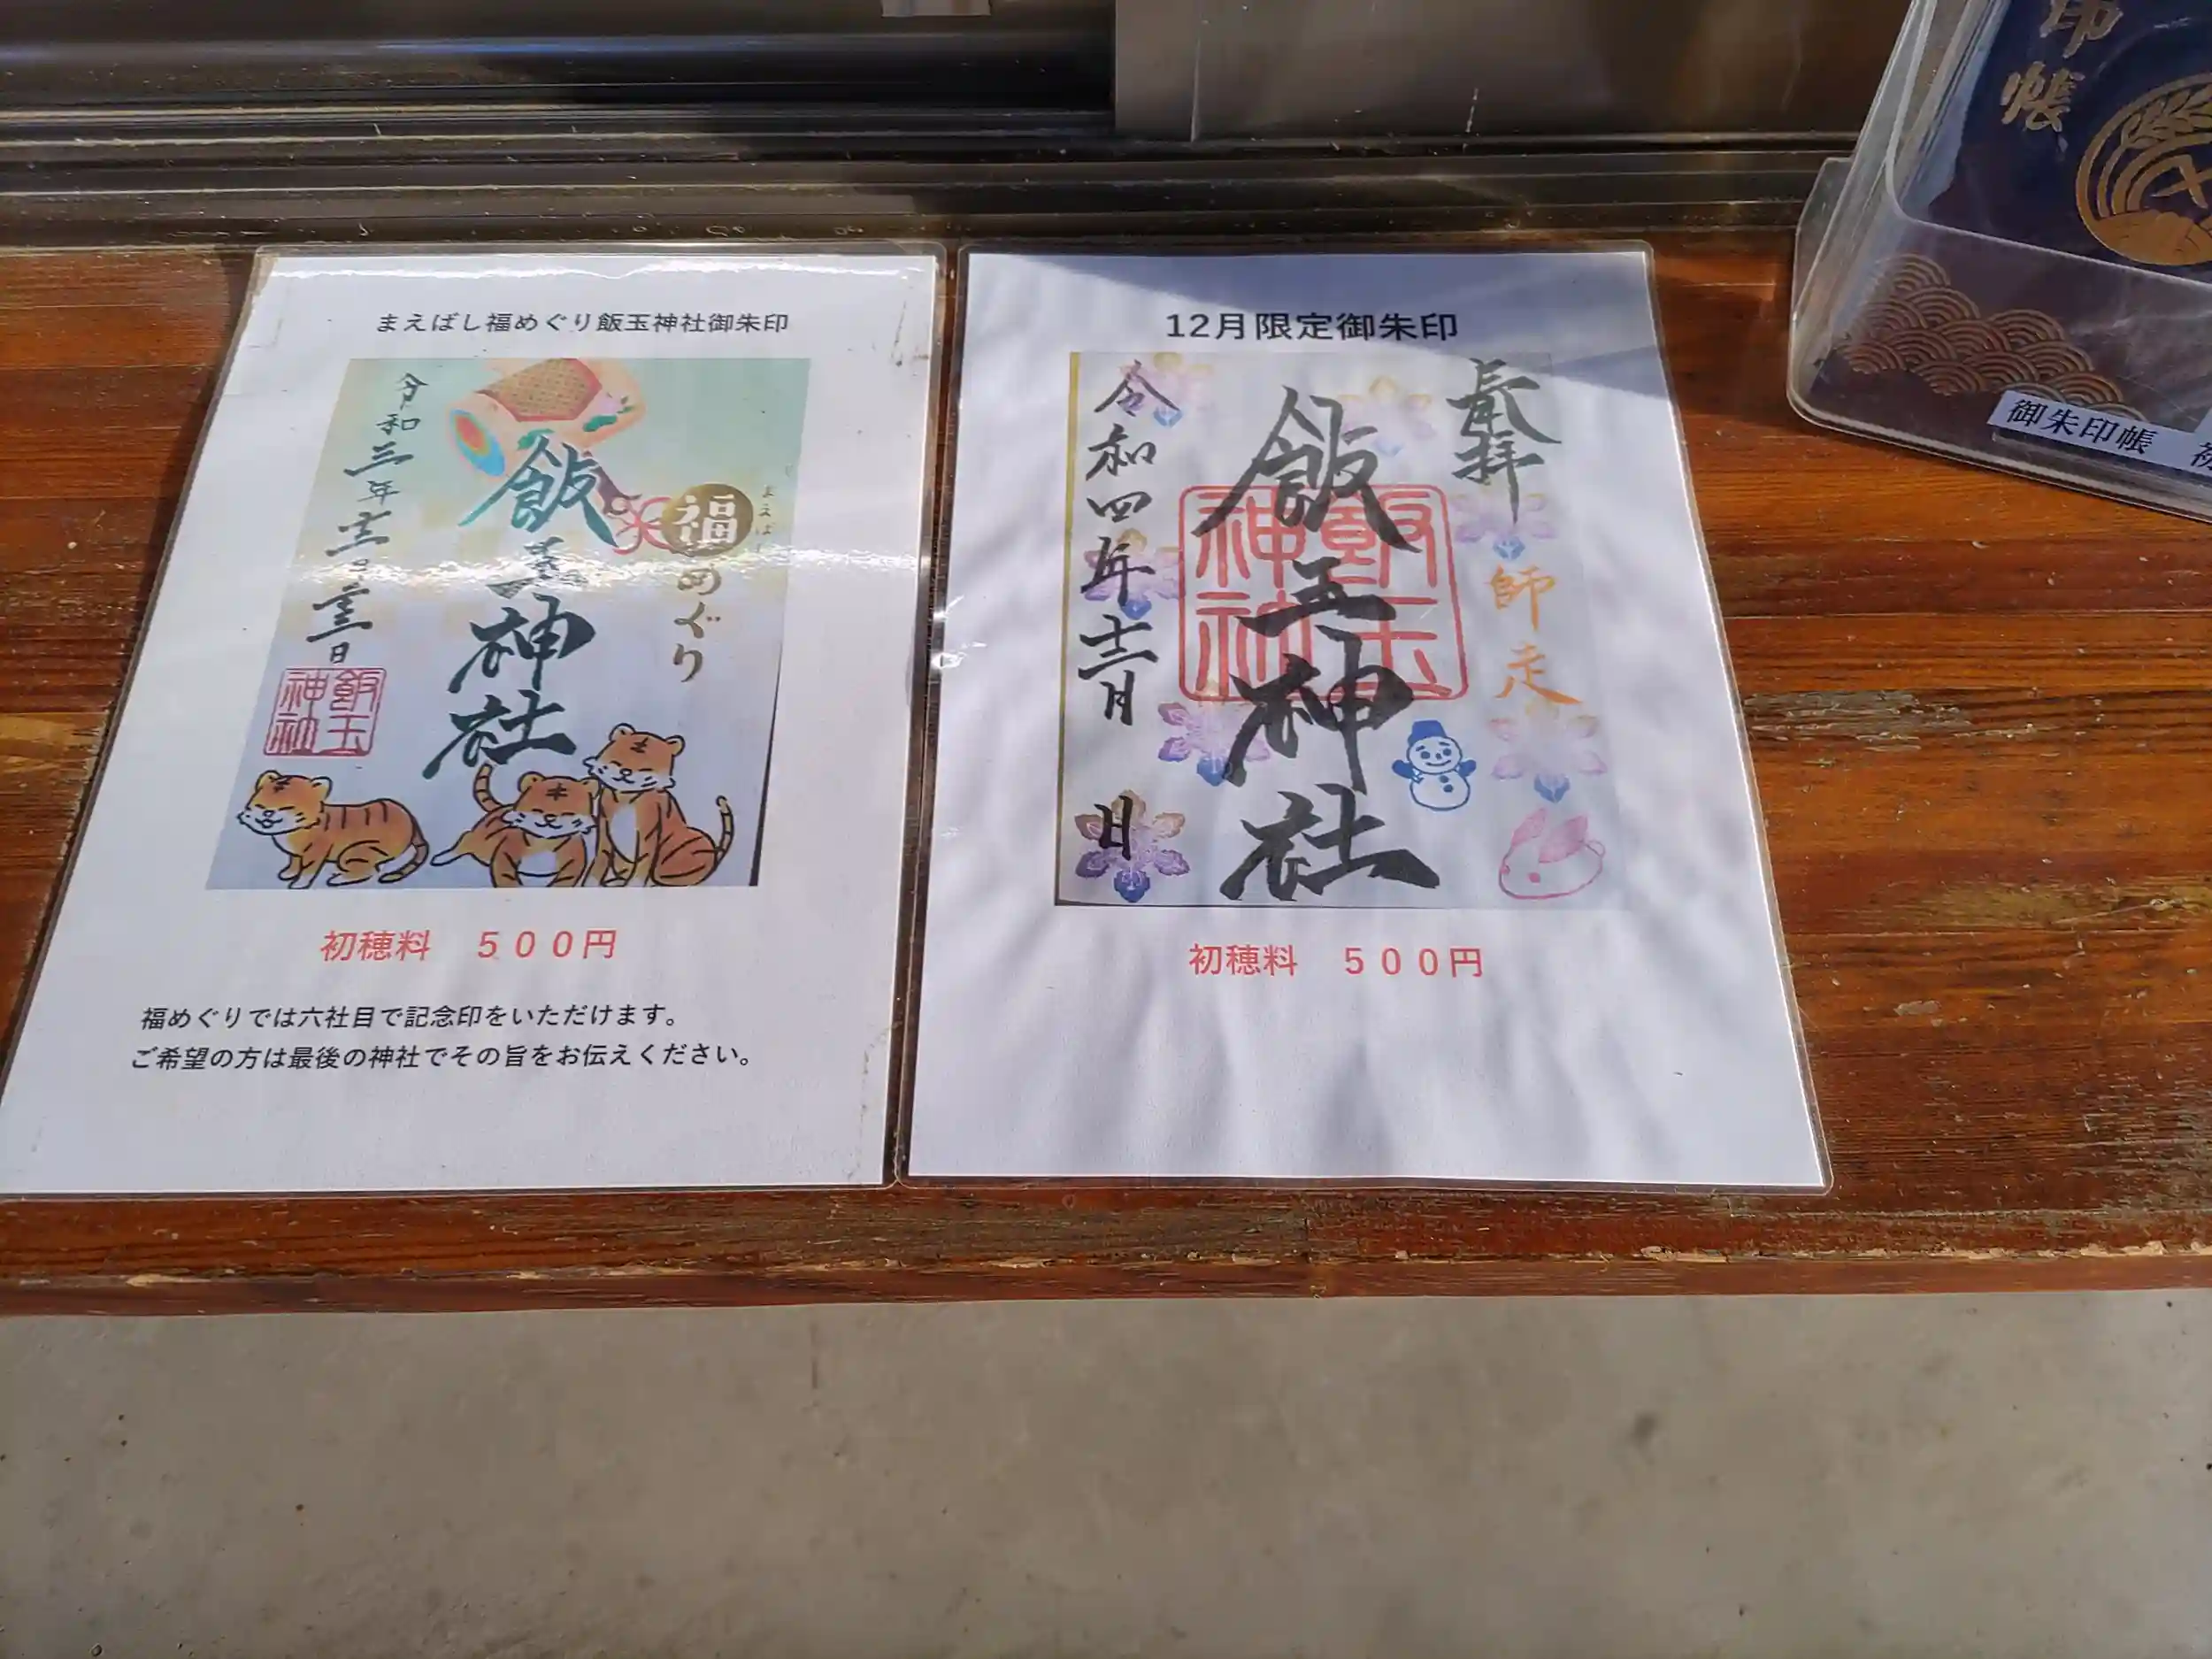 まえばし福めぐり飯玉神社御朱印
福めぐり
飯玉神社
令和三年十二月三十三日
飯玉神社
初穂料　５００円
福めぐりでは六社目で記念印をいただけます。
ご希望の方は最後の神社でその旨をお伝えください。
12月限定御朱印
奉拝
師走
飯玉神社
飯玉神社
令和四年十二月　日
初穂料　５００円
印帳
御朱印帳